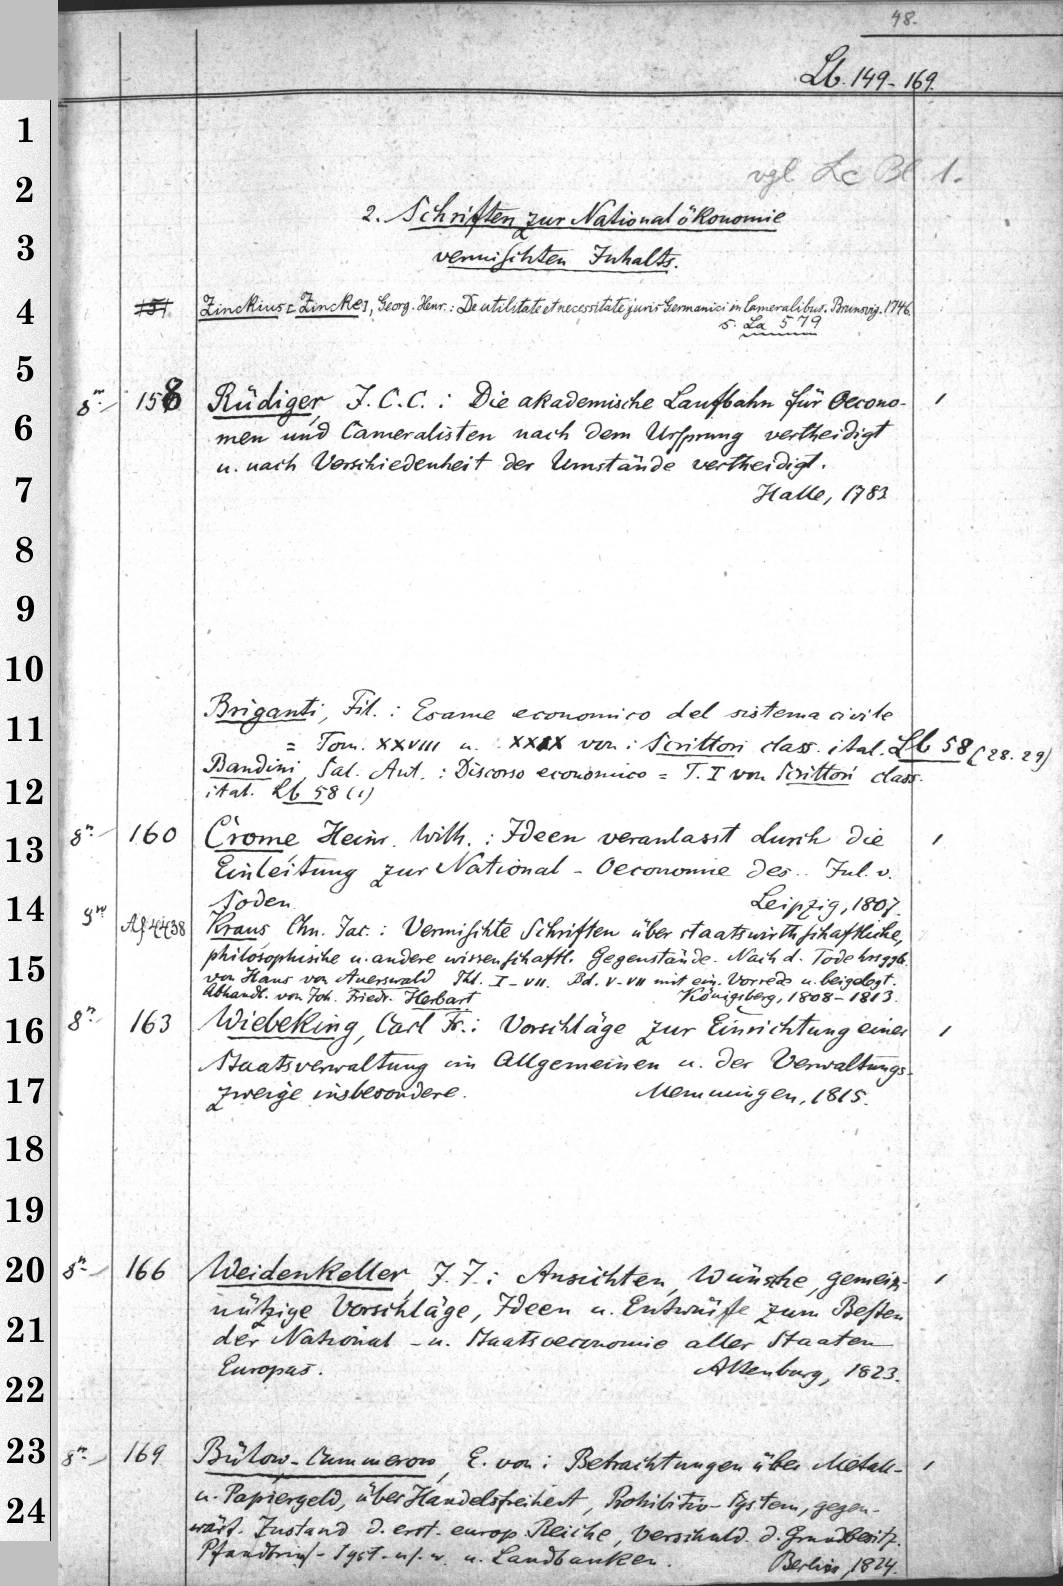 48.
Lb. 149-169.
1
vgl Lc Bl 1.
2
2. Schriften zur Nationalökonomie
3
vermischten Inhalts.
4
151 Zinckius [Zincke], Georg. Henr.: De utilitate et necessitate juris Germanici in Cameralibus. Brunsvig. 1746.
s. La 579
5
8° 158 Rüdiger, J. C. C. : Die akademische Laufbahn für Oecono-
6
men und Cameralisten nach dem Ursprung vertheidigt
u. nach Verschiedenheit der Umstände vertheidigt.
7
Halle, 1783
8
9
10
Briganti, Fil. : Esame economico del sistema civile
11
= Tom. XXVIII u. XXIX von : Scrittori class. ital. Lb 58 (28. 29)
Bandini, Sal. Ant. : Discorso economico = T. I von Scrittori class.
12
ital. Lb 58 (1)
13
8° 160 Crome Heinr. Wilh. : Ideen veranlasst durch die
Einleitung zur National-Oeconomie des .. Jul. v.
14
Soden. Leipzig, 1807.
8° Af 4438 Kraus, Chn. Jac. : Vermischte Schriften über staatswirthschaftliche,
15
philosophische u. andere wissenschaftl. Gegenstände. Nach d. Tode hrsggb.
von Hans von Auerswald Thl. I-VII. Bd. V-VII mit ein. Vorrede u. beigelegt.
Abhandl. von Joh. Friedr. Herbart Königsberg, 1808-1813.
16
8° 163 Wiebeking, Carl Fr. : Vorschläge zur Einrichtung einer
Staatsverwaltung im Allgemeinen u. der Verwaltungs-
17
zweige insbesondere. Memmingen, 1815.
18
19
20
8° 166 Weidenkeller, J. J. : Ansichten, Wünsche, gemein-
nützige Vorschläge, Ideen u. Entwürfe zum Besten
21
der National- u. Staatsoeconomie aller Staaten
22
Europas. Altenburg, 1823.
23
8° 169 Bülow-Cummerow, E. von : Betrachtungen über Metall-
24
u. Papiergeld, über Handelsfreiheit, Prohibitiv-System, gegen-
wärt. Zustand d. erst. europ. Reiche, Verschuld. d. Grundbesitz.
Pfandbrief-Syst. u.s.w. u. Landbanken. Berlin, 1824.